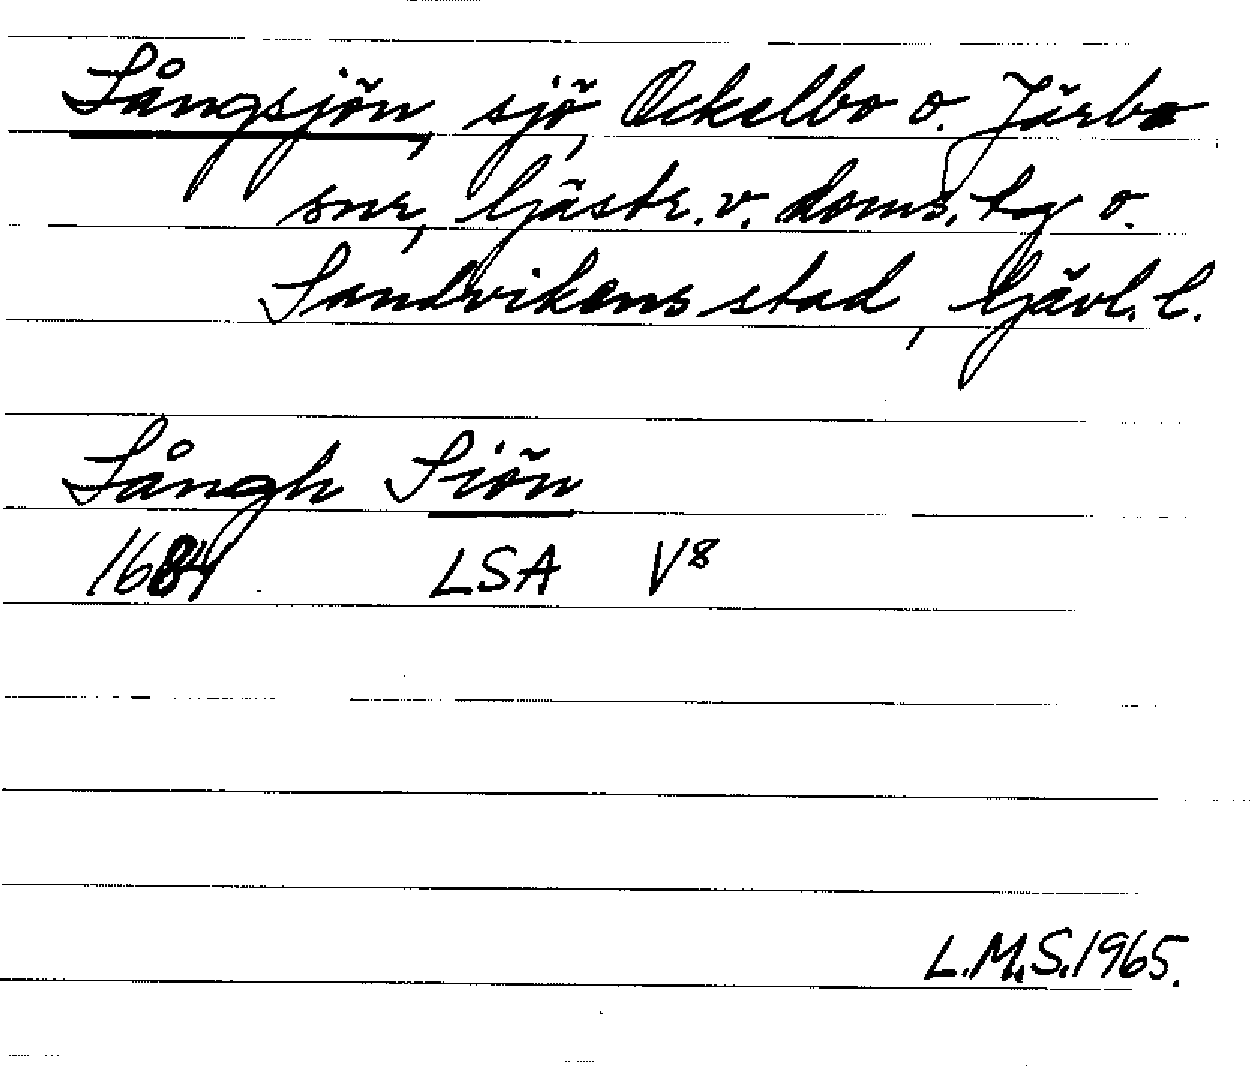 Långsjön, sjö, Ockelbo o. Järbo
snr, Gästr. v. doms. tg o.
Sandvikens stad, Gävl. l.
Långh Siön
1684 LSA V8
L.M.S. 1965.